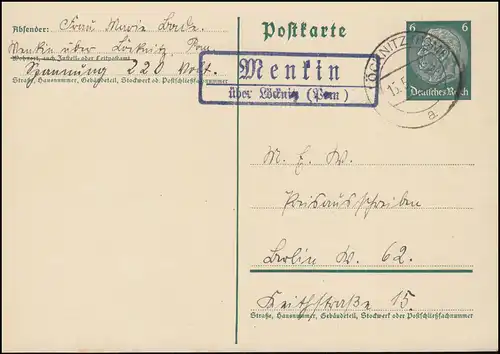 Absender: Frau Marie Bade.
Menkin über Löcknitz, Pom.
Wohnort, auch Zustell- oder Leitpostamt
Spannung 220 Volt.
Straße, Hausnummer, Gebäudeteil, Stockwerk od. Postschließfachnummer
Postkarte
Menkin
über Löcknitz (Pom)
LÖCKNITZ (POM)
15.
a
6 6
Deutsches Reich
M. E. W.
Preisausschreiben
Berlin W. 62.
Keithstraße 15.
Straße, Hausnummer, Gebäudeteil, Stockwerk oder Postschließfachnummer